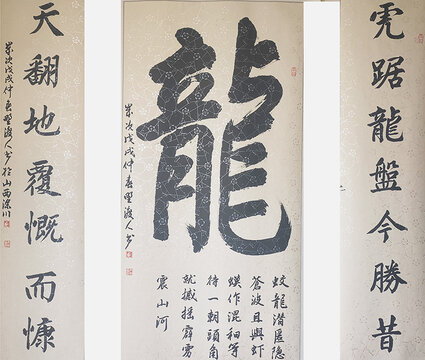 虎踞龍盤今勝昔
龍
蛟龍潛匿隱
蒼波且與虾
蟆作混和等
待一朝頭角
就撼摇霹雳
震山河
歲次戊戌仲春野渡人书
天翻地覆慨而慷
歲次戊戌仲春野渡人书於山西